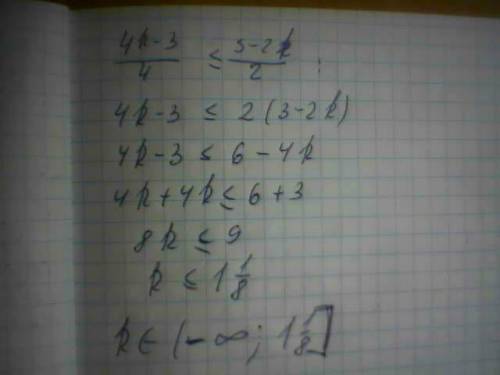 (4k-3)/4 ≤ (3-2k)/2 ;
4k-3 ≤ 2(3-2k)
4k-3 ≤ 6-4k
4k+4k ≤ 6+3
8k ≤ 9
k ≤ 1 1/8
k ∈ (-∞; 1 1/8]